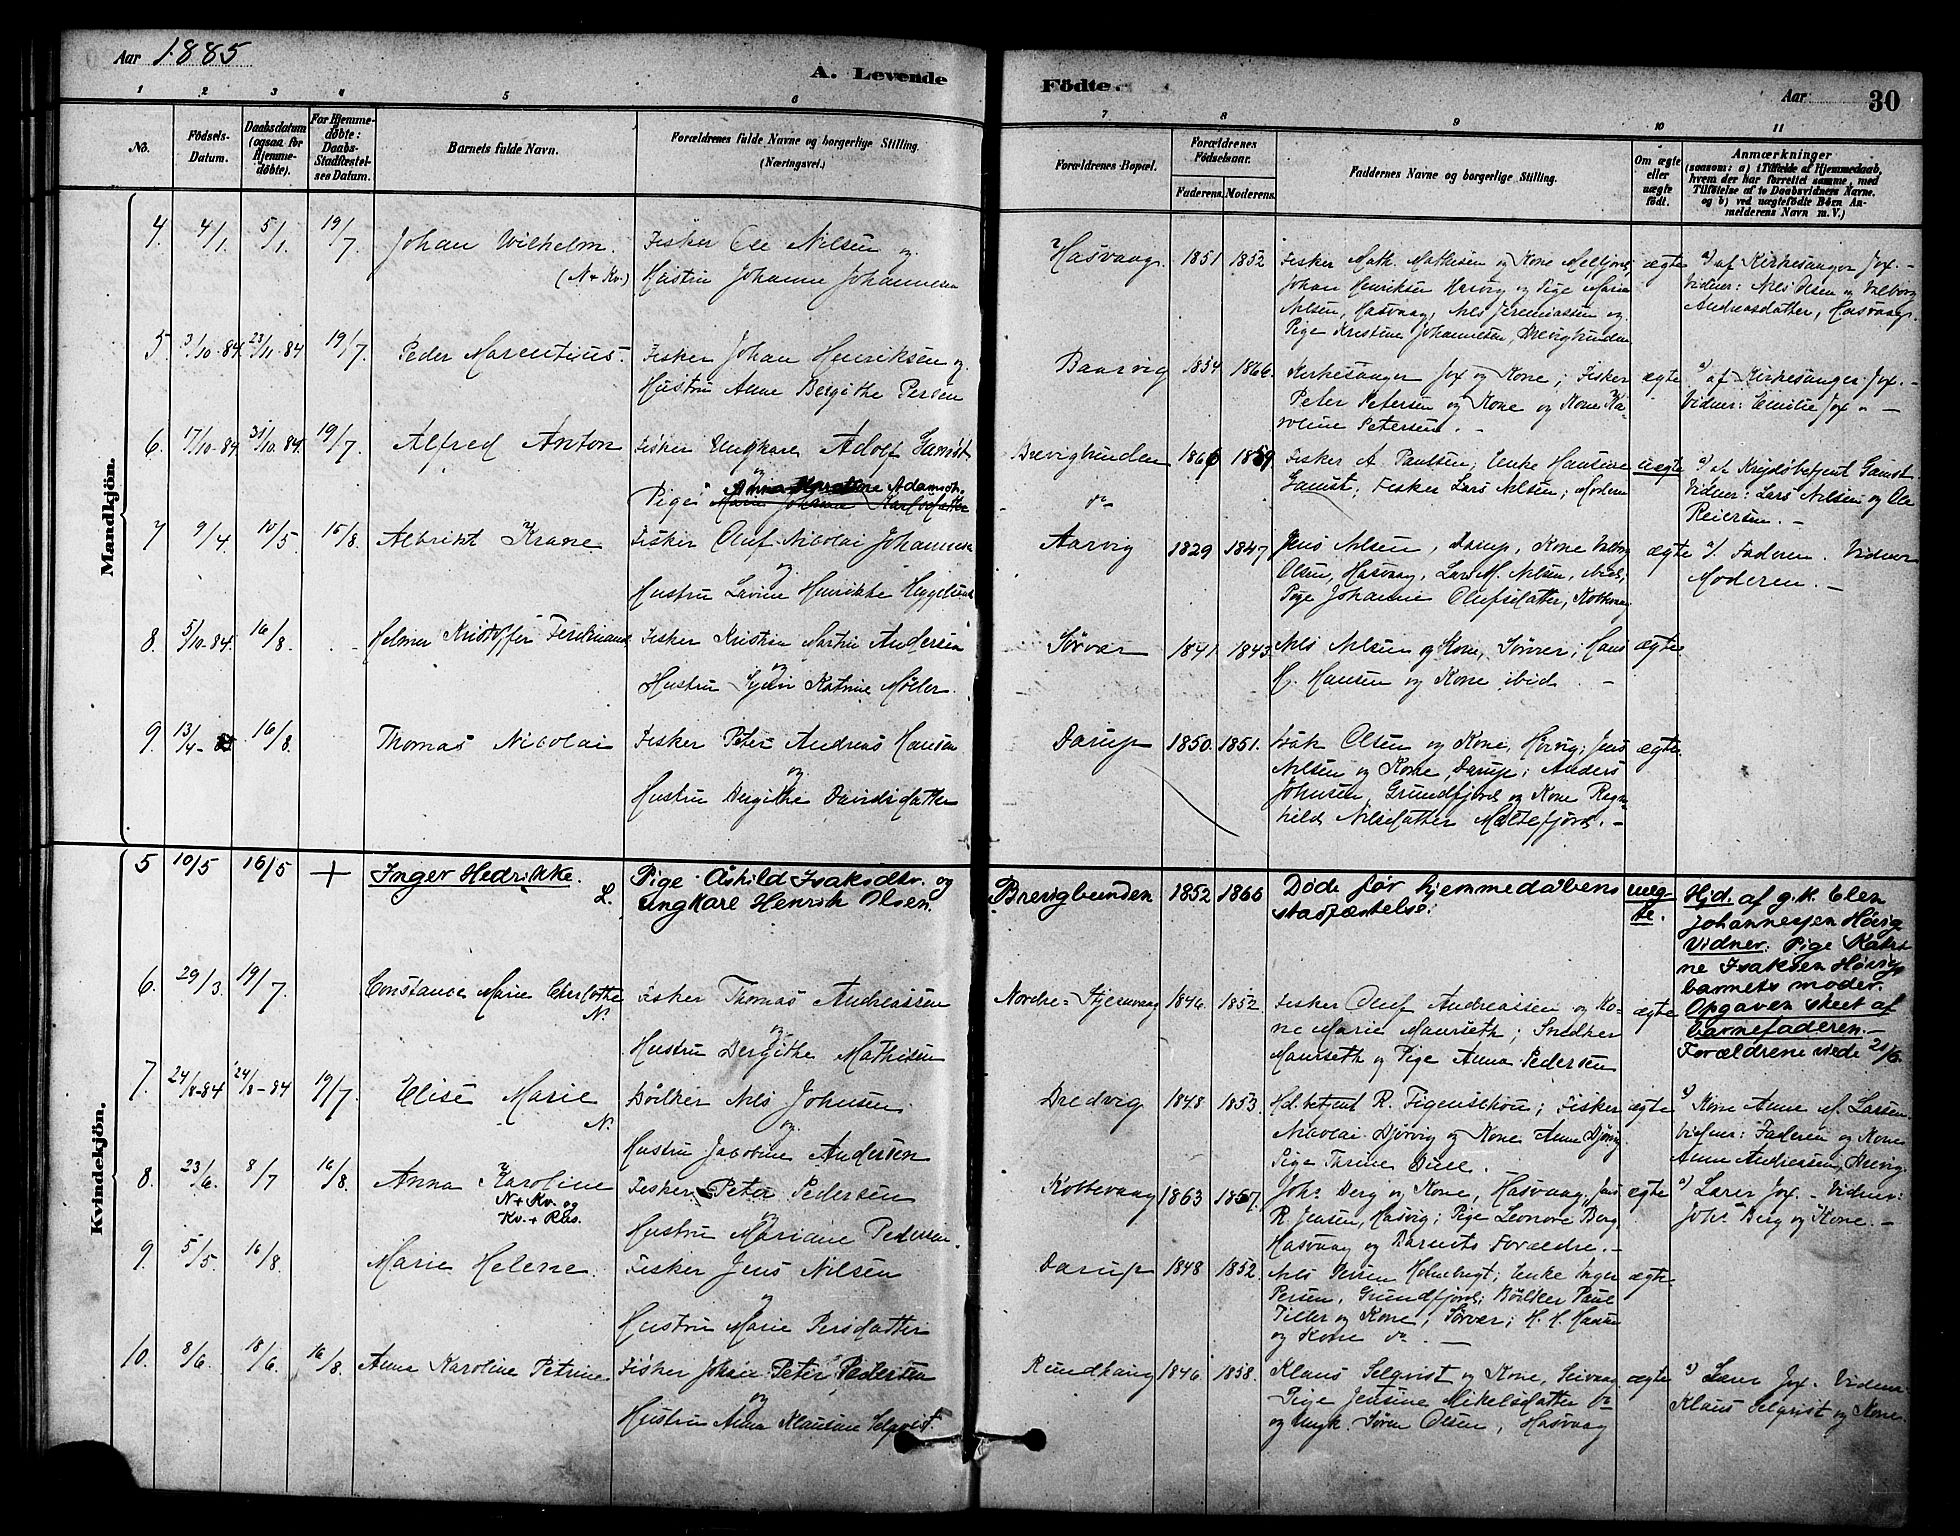 Aar 1885
A. Levende
Fødte.
Aar
30
1 2 3 4 5 6 7 8 9 10 11
No.
Fødsels-
Datum.
Daabsdatum
(ogsaa for
Hjemme-
døbte).
For Hjemme-
døbte:
Daabs-
Stadfæstel-
ses Datum.
Barnets fulde Navn.
Forældrenes fulde Navne og borgerlige Stilling.
(Næringsvei.)
Forældrenes Bopæl.
Forældrenes
Fødselsaar.
Faderens. Moderens.
Faddernes Navne og borgerlige Stilling.
Om ægte
eller
uægte
født.
Anmærkninger
(saasom: a) i Tilfælde af Hjemmedaab,
hvem der har forrettet samme, med
Tilføielse af to Daabsvidners Navne.
og b) ved uægtefødte Børn An-
melderens Navn m. V.)
Mandkjön.
4. 4/1. 5/1. 19/7 Johan Wilhelm. Fisker Ole Nilsen og
(N + Kv) Hustru Johanne Johannesen
Hasvaag 1851 1852 Fisker Math. Mathisen og Kone Melfjord,
Johan Henriksen Hasvig og Pige Marie
Nilsen, Hasvaag, Nils Jeremiassen og
Pige Kristine Johannesen, Brevigbunden
ægte a) af Kirkesanger Jox.-
Vidner: Nils Olsen og Valborg
Andreasdatter, Hasvaag.
5 3/10-84. 23/11-84 19/7. Peder Marentius. Fisker Johan Henriksen og
Hustru Anne Bergithe Persen
Baarvig 1854 1866. Kirkesanger Jox og Kone; Fisker
Peter Petersen og Kone og Kone Ka-
roline Petersen.
ægte a) af Kirkesanger Jox.-
Vidner: Emilie Jox
6. 17/10-84 31/10-84 19/7. Alfred Anton Fisker Ungkarl Adolf
og
Pige Anna Adamsdtr.
Brevigbunden 1866 1859 Fisker A. Paulsen, Enke Hansine
Gamst; Fisker Lars Nilsen; Moderen
uægte a) af Gamst
Vidner: Lars Nilsen og Ole
Reiersen.-
7 9/4. 10/5 15/8. Albrikt Krane Fisker Oluf Nicolai Johannesen
og
Hustru Lavine Henrikke Heggelund
Aarvig 1829 1847 Jens Nilsen, Darup, Kone Valborg
Olsen, Hasvaag, Lars M. Nilsen, ibid;
Pige Johanne Olufsdatter, Kobbevaag
ægte a). Faderen. Vidner
Moderen.-
8. 5/10-84. 16/8. Helmer Kristoffer Ferdinand Fisker Kristian Martin Andersen
og
Hustru Katrine Møller.
Sørvær 1841 1843. Nils Nilsen og Kone, Sørvær; Hans
H. Hansen og Kone ibid.
ægte
9. 13/4- 16/8. Thomas Nicolai Fisker Peter Andreas Hansen
og
Hustru Bergithe Davidsdatter
Darup 1850. 1851. Isak Olsen og Kone, Høivig; Jens
Nilsen og Kone, Darup; Anders
Johnsen, Grundfjord og Kone Ragn-
hild Nilsdatter Maltefjord.-
ægte
Kvindekjön.
5 10/5 16/5 + Inger Hedrikke. Pige Åshild Isaksdtr. og
L. ungkarl Henrik Olsen.
Brevigbunden 1852 1866 Døde før hjemmedåbens
stadfæstelse.
uæg-
te.
Hjd. af g.k. Elen
Johannesen Høivig
Vidner: Pige Katri-
ne Isaksen Høivig,
barnets moder.
Opgaven skeet af
barnefaderen.-
Forældrene viede 21/6.
6. 29/3. 19/7. Constance Marie Charlotte Fisker Thomas Andreassen
N. og
Hustru Bergithe Mathisen
Nordre-Stjernvaag 1846. 1852. Fisker Oluf Andreassen og Ko-
ne Marie Maurseth; Snedker
Maurseth og Pige Anna Pedersen
ægte
7. 24/8-84 24/8-84 19/7 Elise Marie Bødker Nils Johnsen
N. og
Hustru Jacobine Andersen
Bredvig 1848 1853. Hd.betjent R. Figenschou; Fisker
Nicolai Djørvig og Kone Anne Djørvig
Pige Thrine Bull.
ægte a) Kone Anne M. Larsen
Vidner: Faderen og Kone
Anne Andreassen, Brevig.
8. 23/6. 8/7 16/8. Anna Karoline Fisker Peter Pedersen
N + Kv. og
Kv. + Ras. og
Hustru Mariane Pedersen.
Kobbevaag 1863 1867. Johs Berg og Kone, Hasvaag, Jens
R. Jensen, Hasvig; Pige Leonore Berg
Hasvaag og Barnets Forældre.-
ægte a) Lærer Jox.- Vidner:
Johs Berg og Kone.-
9. 5/5 16/8. Marie Helene. Fisker Jens Nilsen
og
Hustru Marie Persdatter
Darup 1848 1852. Nils Persen Holmbugt; Enke Inger
Persen, Grundfjord; Bødker Paul
Piller og Kone, Sørvær; H. H. Hansen
og Kone do.
ægte
10. 8/6. 18/6. 16/8. Anna Karoline Petrine Fisker Johan Peter Pedersen
og
Hustru Anna Klausine Selqvist.
Rundhaug 1846. 1858. Klaus Selqvist og Kone, Seivaag
Pige Jensine Mikelsdatter do
og Ungk. Søren Olsen, Hasvaag
ægte a) Lærer Jox. Vidner
Klaus Selqvist og Kone.